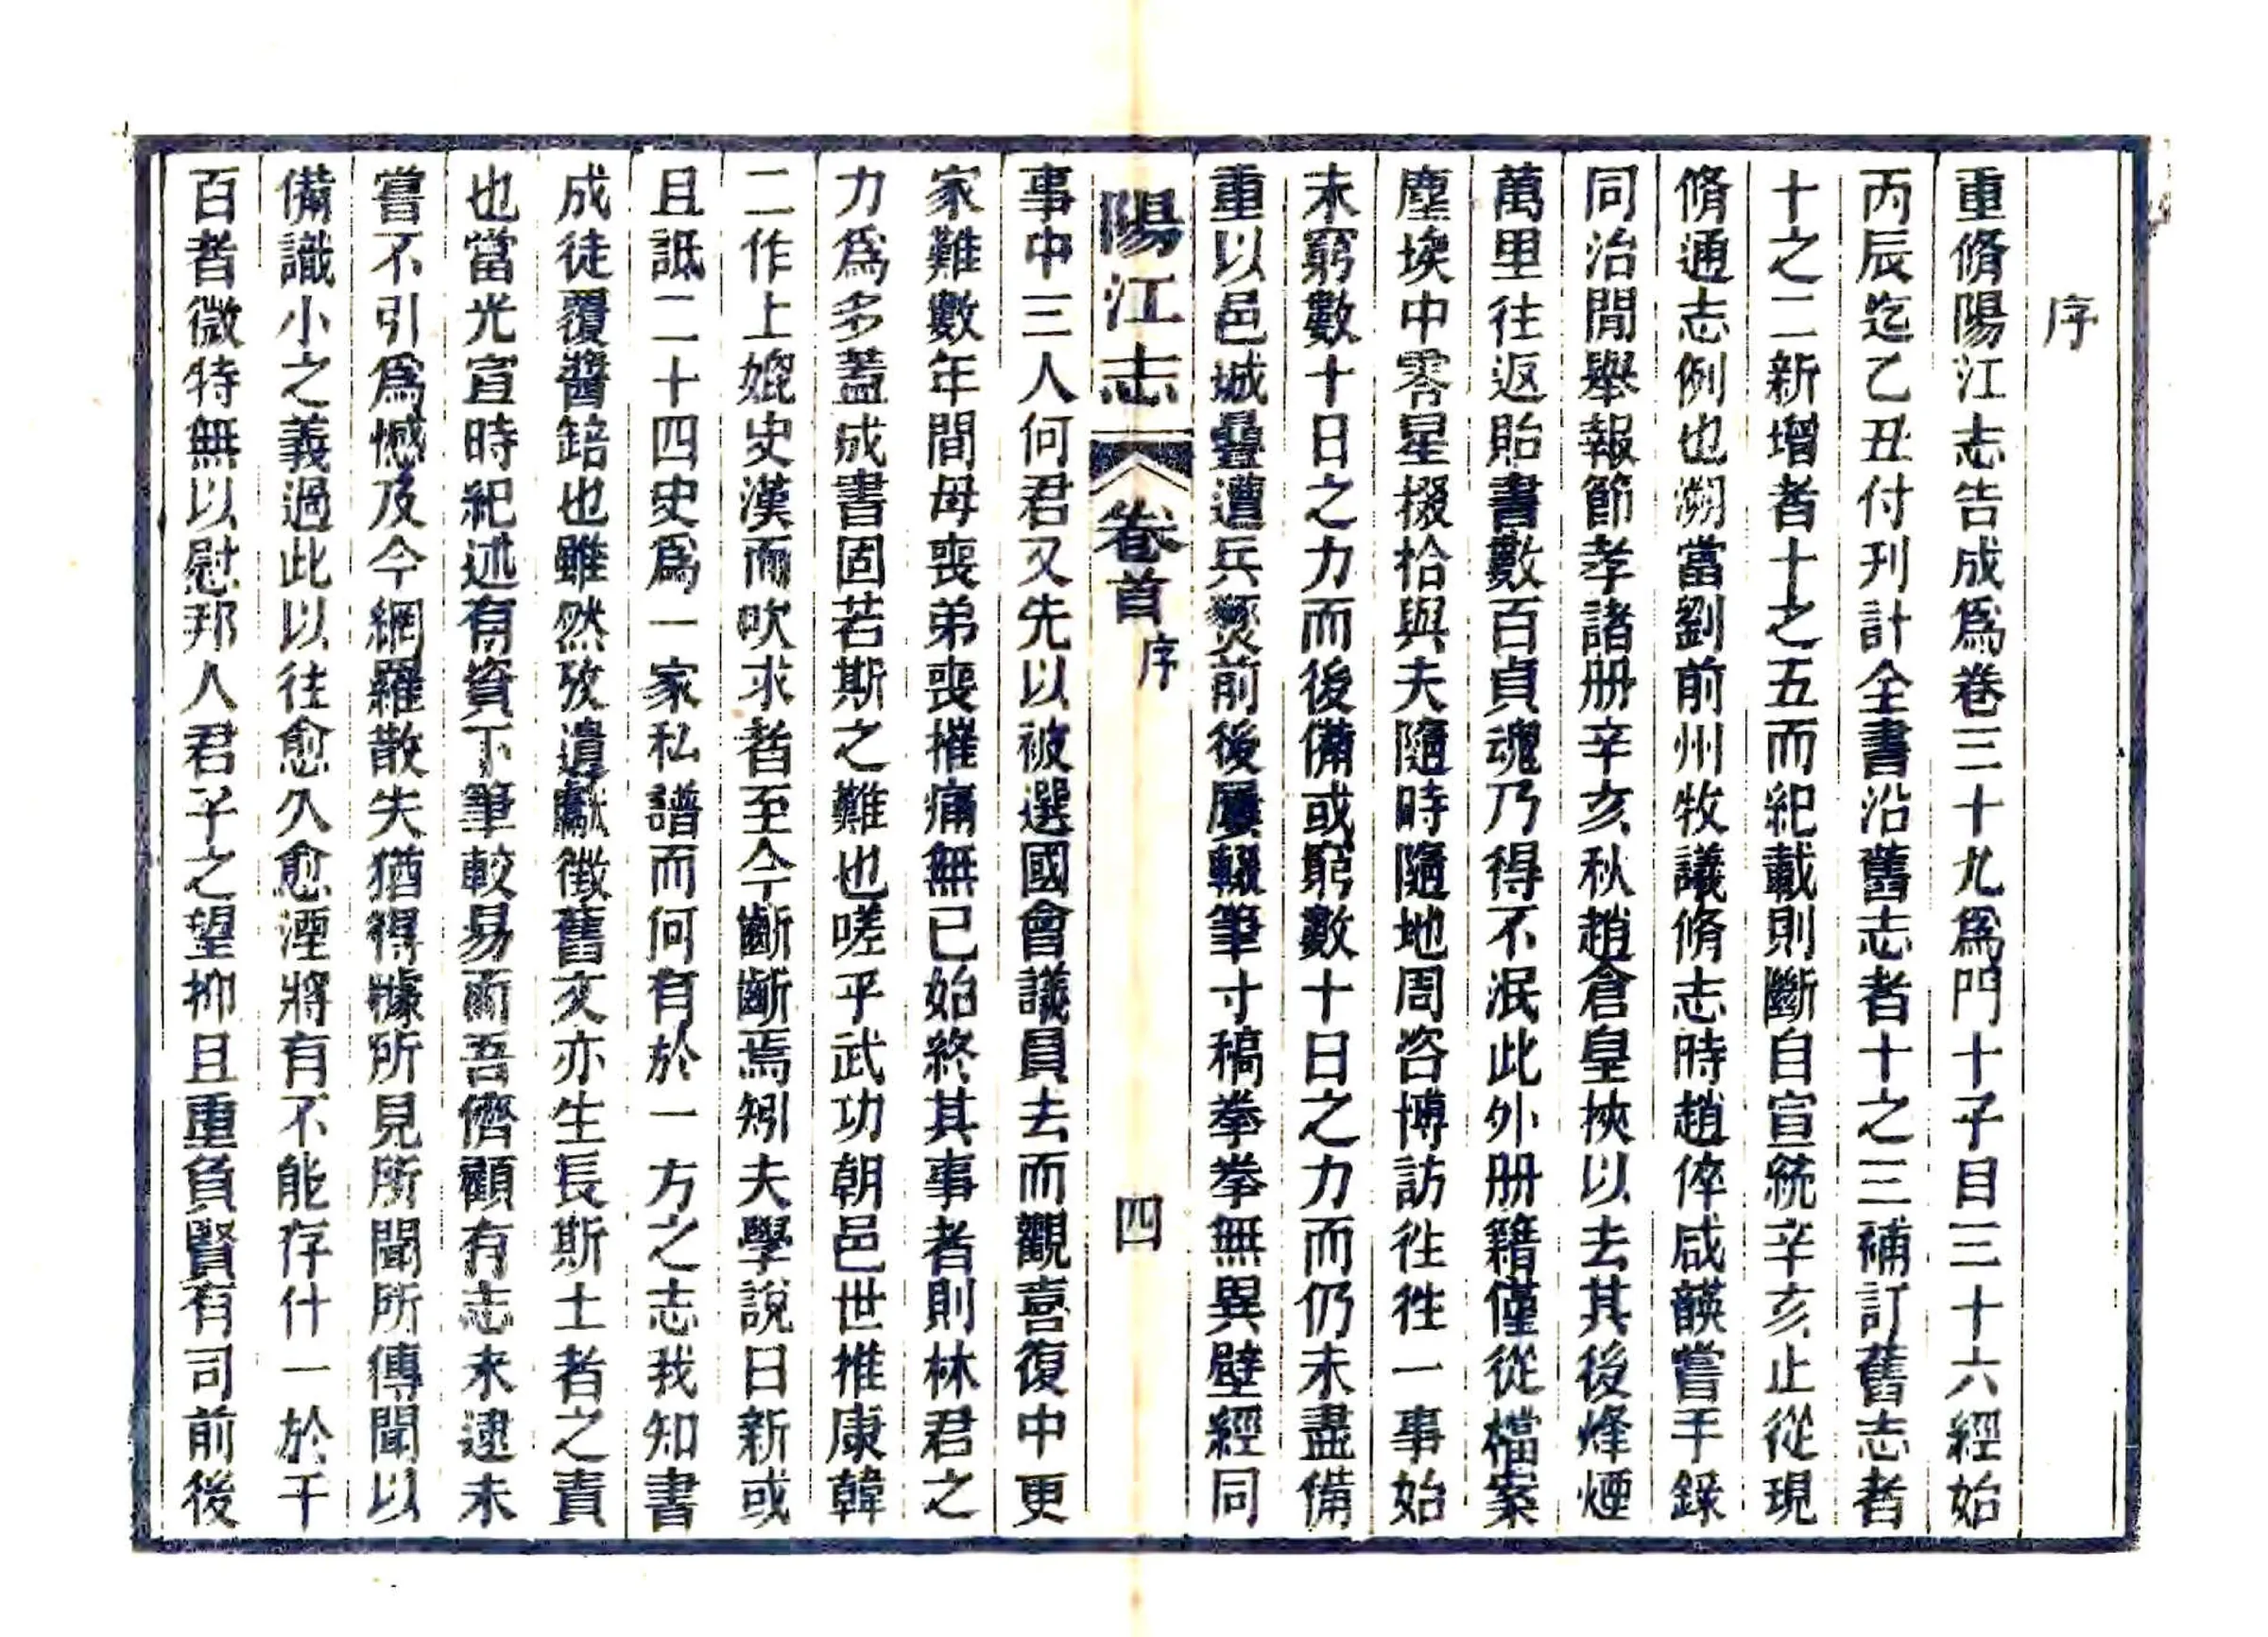 序
重脩陽江志告成爲卷三十九爲門十子目三十六經始
丙辰迄乙丑付刊計全書沿舊志者十之三補訂舊志者
十之二新增者十之五而紀載則斷自宣統辛亥止從現
脩通志例也溯當劉前州牧議脩志時趙倅咸韺嘗手錄
同治閒舉報節孝諸册辛亥秋趙倉皇挾以去其後烽煙
萬里往返貽書數百貞魂乃得不泯此外册籍僅從檔案
塵埃中零星掇拾與夫隨時隨地周咨博訪徃徃一事始
末窮數十日之力而後備或窮數十日之力而仍未盡備
重以邑城疊遭兵燹前後屢輟筆寸稿拳拳無異壁經同
陽江志 卷首 序 四
事中三人何君又先以被選國會議員去而觀喜復中更
家難數年間母喪弟喪摧痛無已始終其事者則林君之
力爲多蓋成書固若斯之難也嗟乎武功朝邑世推康韓
二作上媲史漢而吹求者至今齗齗焉矧夫學說日新或
且詆二十四史爲一家私譜而何有於一方之志我知書
成徒覆醬錇也雖然攷遺獻徵舊文亦生長斯土者之責
也當光宣時紀述有資下筆較易而吾儕顧有志未逮未
嘗不引爲憾及今網羅散失猶得據所見所聞所傳聞以
備識小之義過此以往愈久愈湮將有不能存什一於千
百者微特無以慰邦人君子之望抑且重負賢有司前後